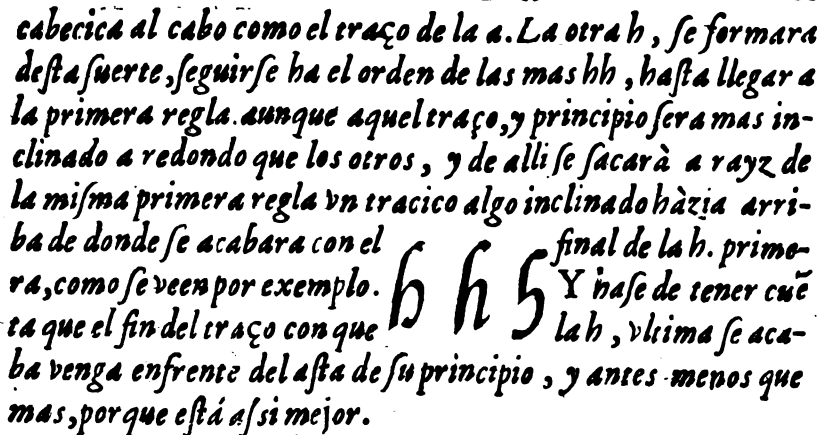 cabecica al cabo como el traço de la a. La otra h, ſe formara
deſta ſuerte, ſeguirſe ha el orden de las mas hh, haſta llegar a
la primera regla. aunque aquel traço, y principio ſera mas in-
clinado a redondo que los otros, y de alli ſe ſacarà a rayz de
la miſma primera regla vn tracico algo inclinado hàzia arri-
ba de donde ſe acabara con el final de la h. prime-
ra, como ſe veen por exemplo. h h h Y haſe de tener cuẽ
ta que el fin del traço con que la h, vltima ſe aca-
ba venga enfrente del aſta de ſu principio, y antes menos que
mas, porque eſtá aſsi mejor.